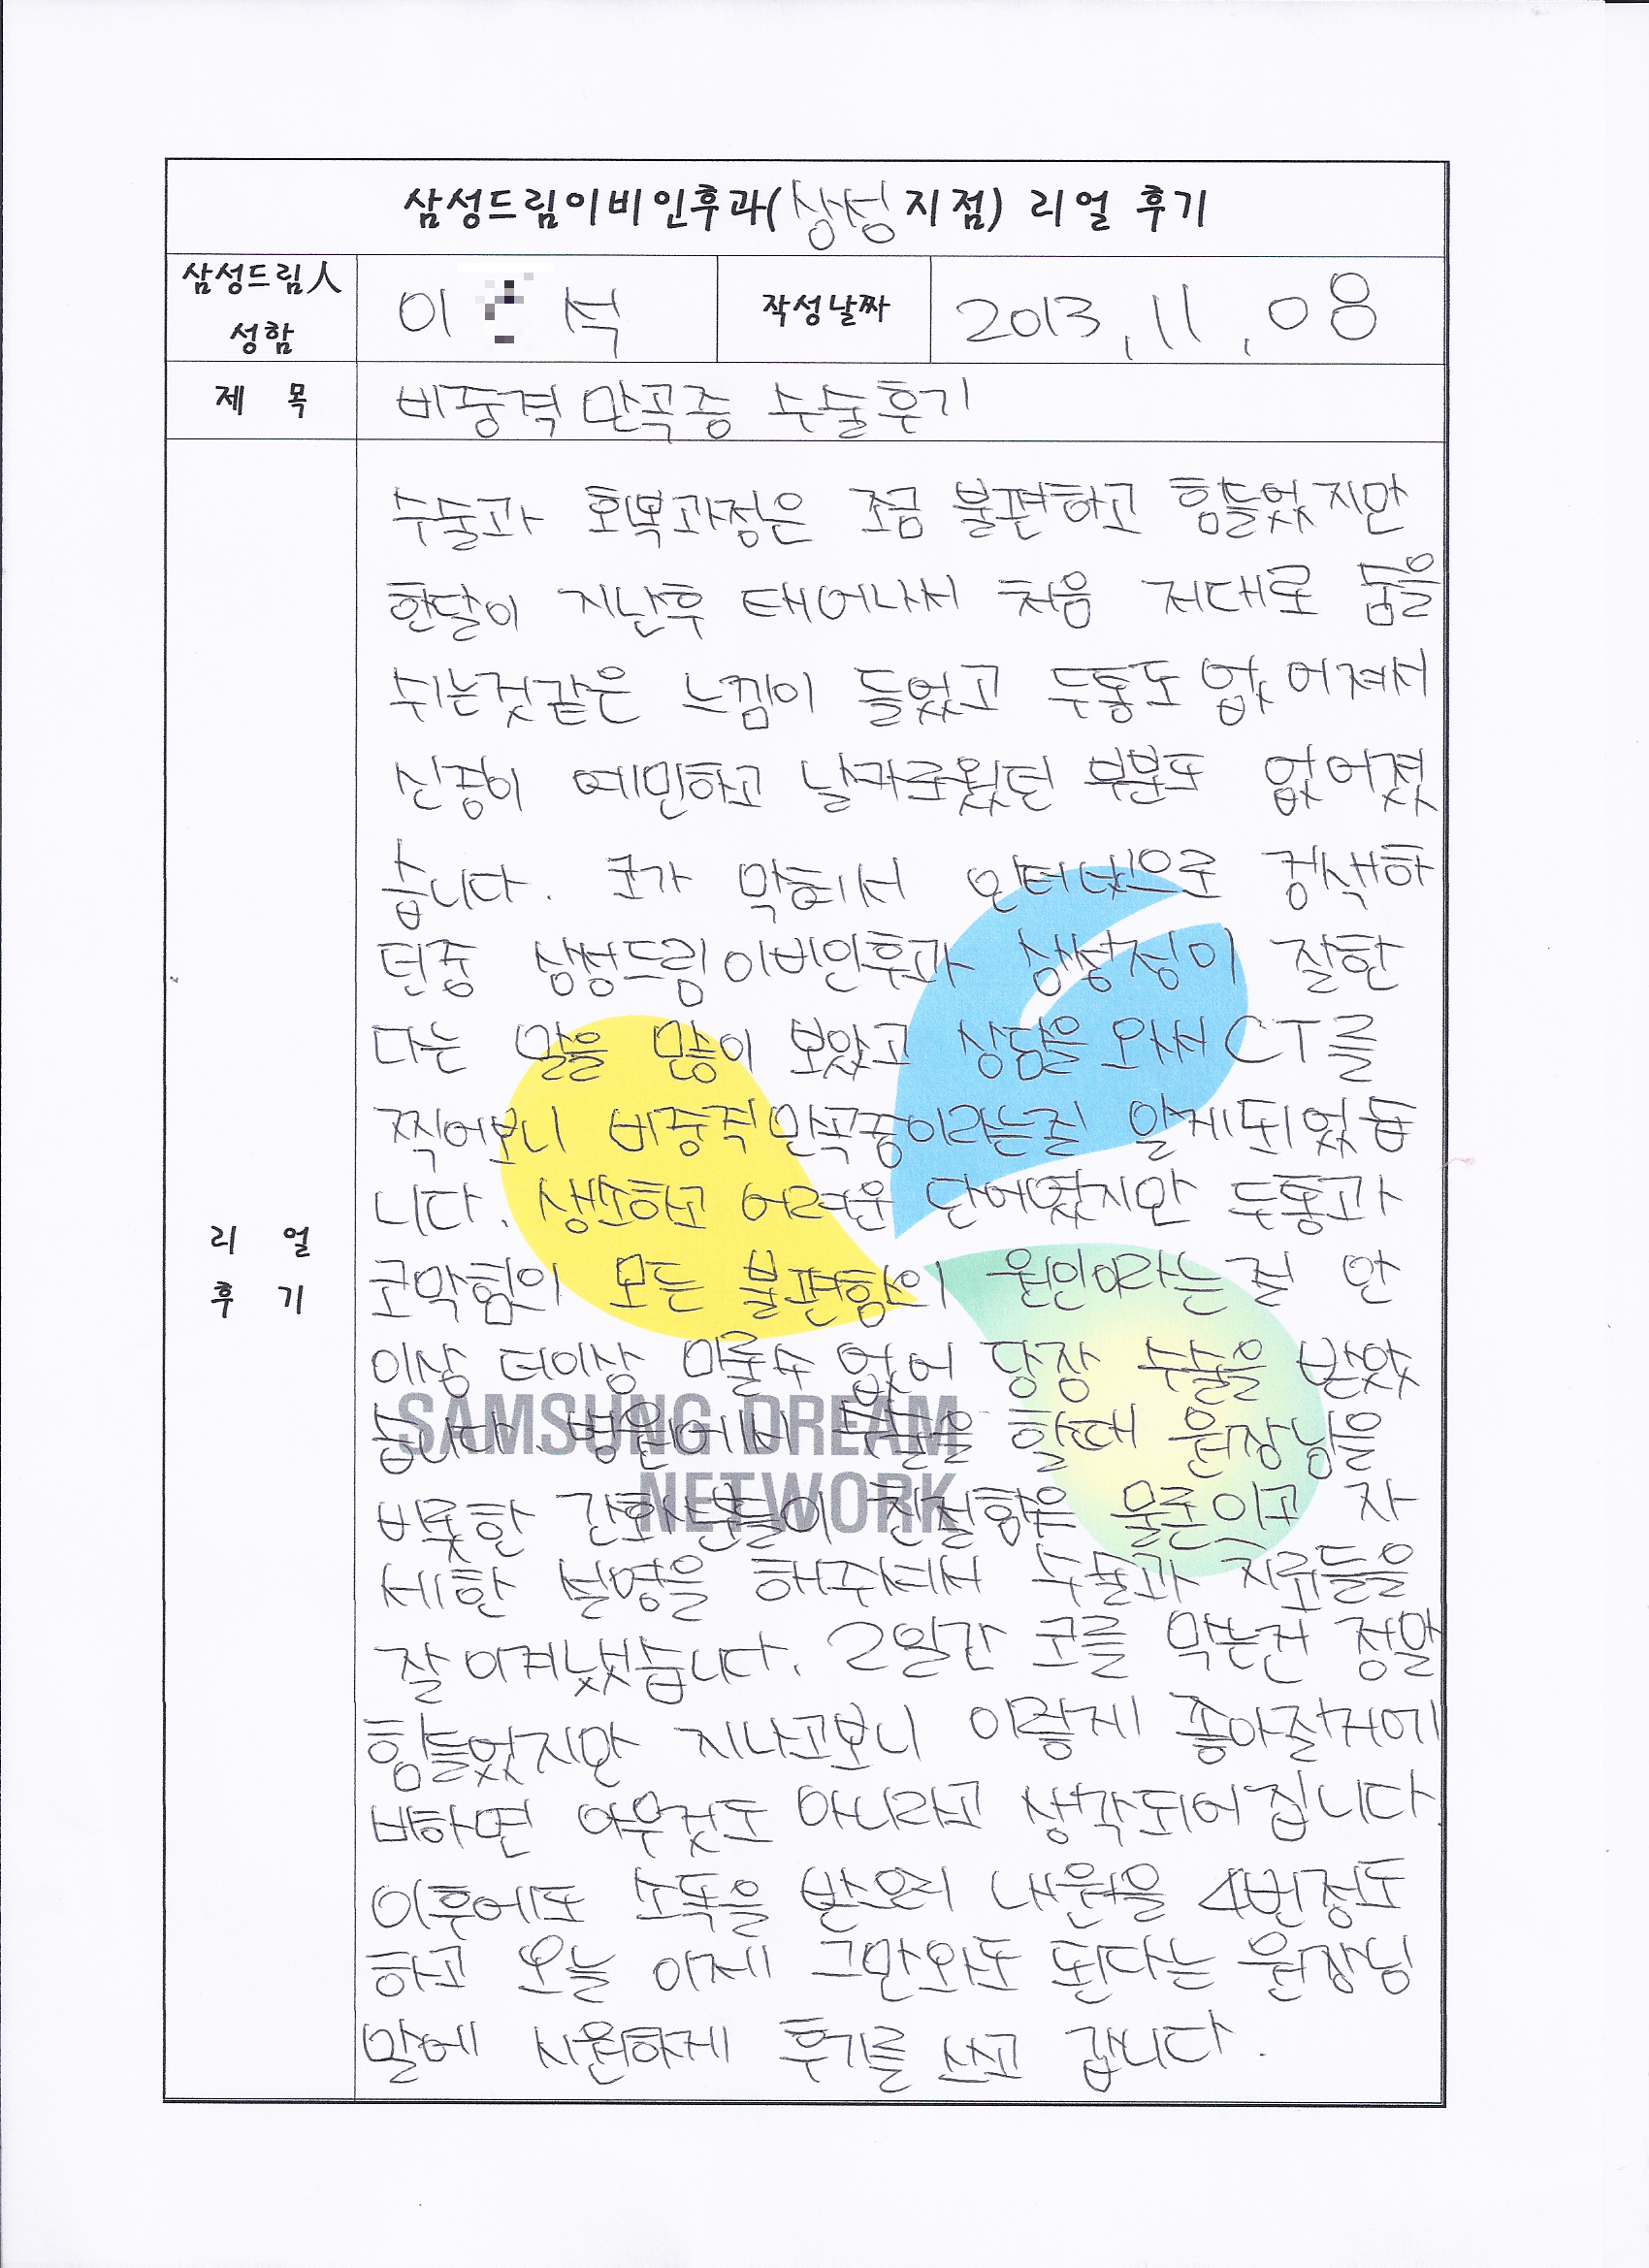 삼성드림이비인후과(삼성지점) 리얼 후기
삼성드림人
성함
이 석
작성날짜
2013.11.08
제 목
비중격 만곡증 수술후기
수술과 회복과정은 조금 불편하고 힘들었지만
한달이 지난후 태어나서 처음 저대로 숨을
쉬는것같은 느낌이 들었고 두통도 없어져서
신경이 예민하고 날카로웠던 부분도 없어졌
습니다. 코가 막혀서 인터넷으로 검색하
던중 삼성드림이비인후과 삼성점이 잘한
다는 말을 많이 보았고 상담을 와서 CT를
찍어보니 비중격만곡증이라는걸 알게되었습
니다. 생소하고 어려운 단어였지만 두통과
코막힘의 모든 불편함의 원인이라는걸 안
이상 더이상 미룰수 없어 당장 수술을 받았
습니다. 병원에서 수술을 할때 원장님을
비롯한 간호사분들이 친절함은 물론이고 자
세한 설명을 해주셔서 수술과 치료들을
잘 이겨냈습니다. 2일간 코를 막는건 정말
힘들었지만 지나고보니 이렇게 좋아질거에
비하면 아무것도 아니라고 생각되어집니다.
이후에도 소독을 받으러 내원을 4번정도
하고 오늘 이제 그만와도 된다는 원장님
말에 시원하게 후기를 쓰고 갑니다.
리 얼
후 기
SAMSUNG DREAM
NETWORK